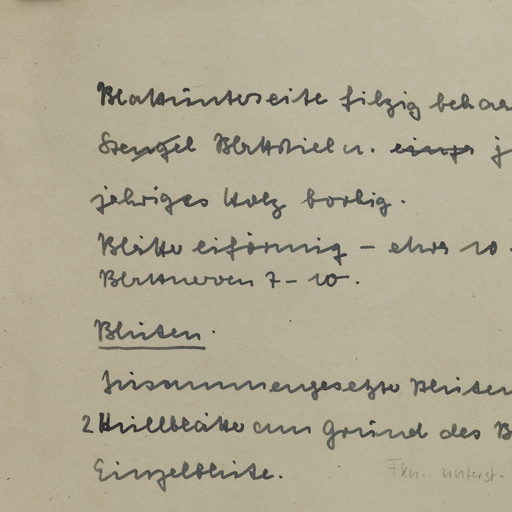 Blattunterseite filzig behaa
Stengel Blattstiel u. einja j
jähriges Holz borkig.
Blätter eiförmig – etwa 10
Blattnerven 7–10.
Blüten.
Zusammengesetzte Blüten
2 Hüllblätter am Grund des B
Einzelblüte.
Fkn. unterst.